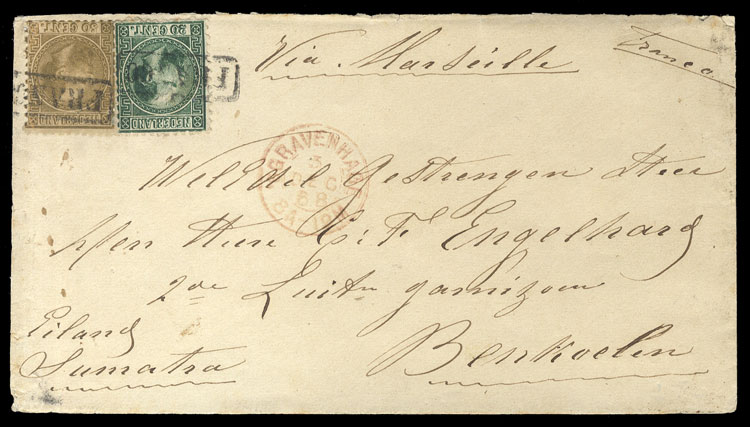 50 CENT. 20 CENT.
NEDERLAND NEDERLAND
FRA
Via Marseille
Franco
'S GRAVENHAGE
3
DEC
68
WelEdel Gestrengen Heer
Den Heer C: F. Engelhard
2de Luitn garnizoen
Eiland
Benkoelen
Sumatra